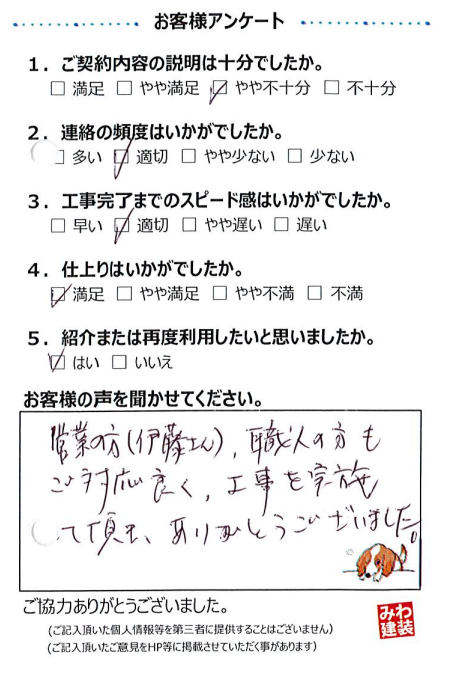 お客様アンケート
1．ご契約内容の説明は十分でしたか。
□ 満足 □ やや満足 ☑ やや不十分 □ 不十分
2．連絡の頻度はいかがでしたか。
□ 多い ☑ 適切 □ やや少ない □ 少ない
3．工事完了までのスピード感はいかがでしたか。
□ 早い ☑ 適切 □ やや遅い □ 遅い
4．仕上りはいかがでしたか。
☑ 満足 □ やや満足 □ やや不満 □ 不満
5．紹介または再度利用したいと思いましたか。
☑ はい □ いいえ
お客様の声を聞かせてください。
営業の方(伊藤さん)，職人の方も
ご対応良く，工事を実施
て頂き、ありがとうございました。
ご協力ありがとうございました。
(ご記入頂いた個人情報等を第三者に提供することはございません)
(ご記入頂いたご意見をHP等に掲載させていただく事があります)
みわ
建装